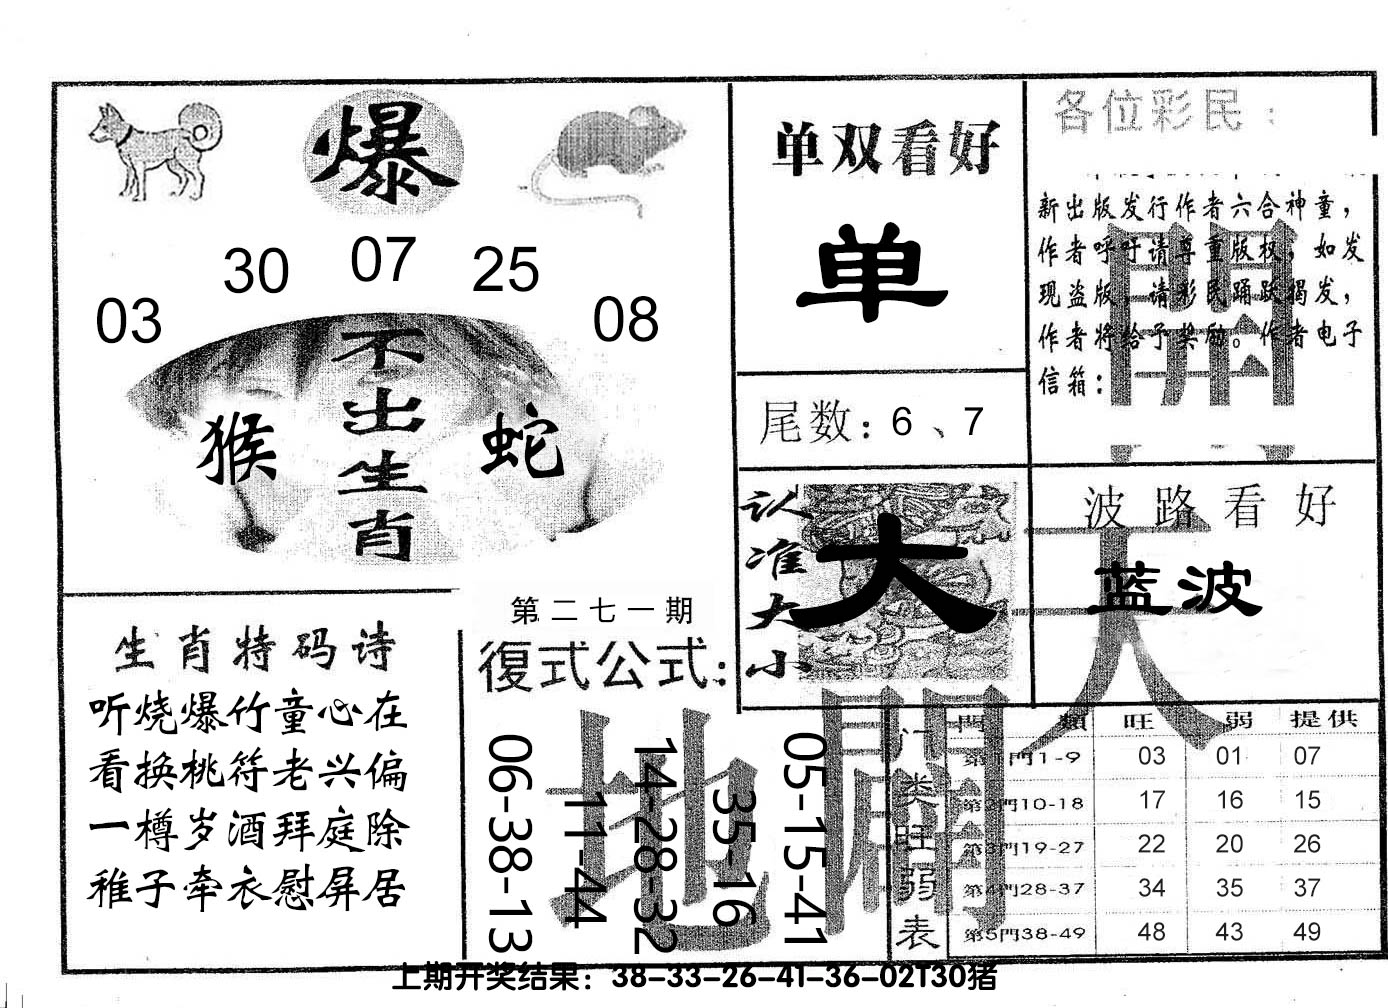 爆
03 30 07 25 08
不出生肖
猴 蛇
单双看好
单
尾数：6、7
各位彩民：
新出版发行作者六合神童，
作者呼吁请尊重版权，如发
现盗版，请彩民踊跃揭发，
作者将给予奖励。作者电子
信箱：
開
认准大小
大
波路看好
蓝波
天
生肖特码诗
听烧爆竹童心在
看换桃符老兴偏
一樽岁酒拜庭除
稚子牵衣慰屏居
第二七一期
復式公式：
06-38-13
11-44
14-28-32
35-16
05-15-41
地
門类旺弱表
門類 旺 弱 提供
第1門1-9 03 01 07
第2門10-18 17 16 15
第3門19-27 22 20 26
第4門28-37 34 35 37
第5門38-49 48 43 49
上期开奖结果：38-33-26-41-36-02T30猪